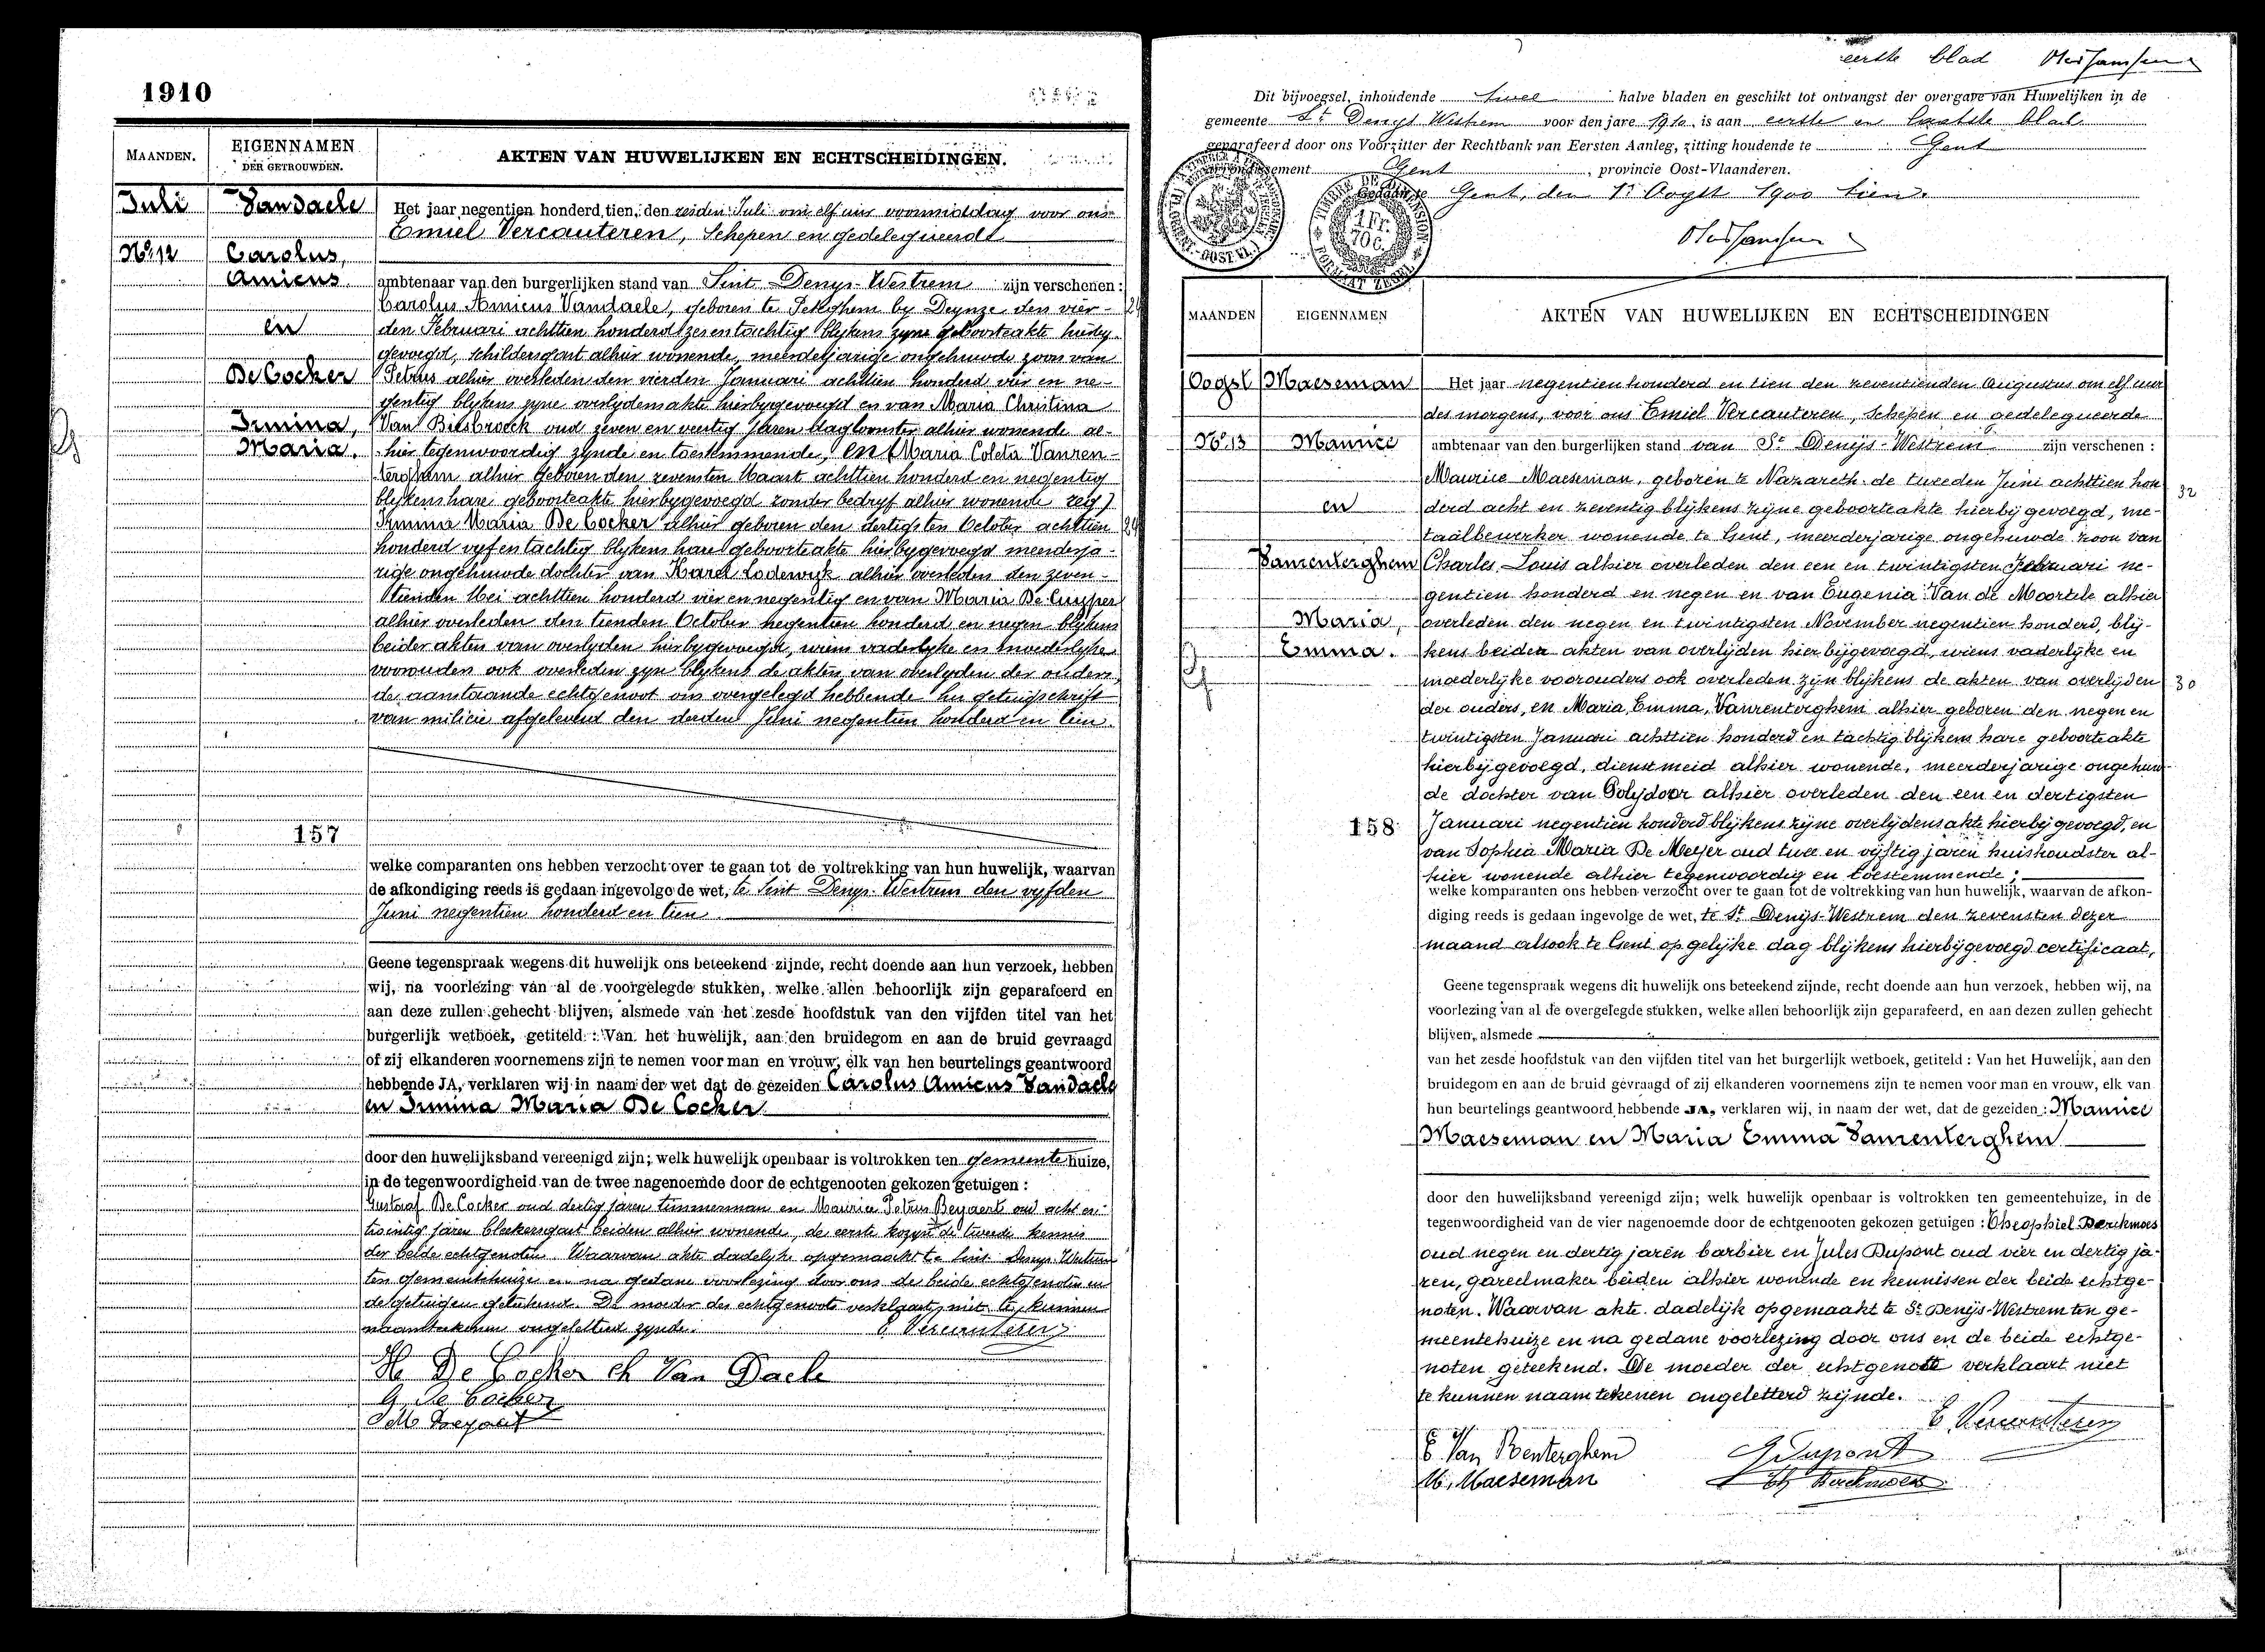 1910
MAANDEN.
EIGENNAMEN
DER GETROUWDEN.
AKTEN VAN HUWELIJKEN EN ECHTSCHEIDINGEN.
Juli
Vandaele
No 12
Carolus,
Amicus
en
De Cocker
Irmina,
Maria.
157
Het jaar negentien honderd tien, den zesden Juli om elf uur voormiddag voor ons
Emiel Vercauteren, Schepen en gedelegueerde
ambtenaar van den burgerlijken stand van Sint-Denys-Westrem zijn verschenen:
Carolus Amicus Vandaele, geboren te Peteghem by Deynze den vier-
den Februari achttien honderd zes en tachtig blykens zyne geboorteakte hierby-
gevoegd, schildersgast alhier wonende, meerderjarige ongehuwde zoon van
Petrus alhier overleden den vierden Januari achttien honderd vier en ne-
gentig blykens zyne overlydensakte hierbygevoegd en van Maria Christina
Van Bilsbroeck oud zeven en veertig jaren dagloonster alhier wonende al-
hier tegenwoordig zynde en toestemmende, en (Maria Coleta Vanren-
terghem alhier geboren den zevensten Maart achttien honderd en negentig
blykens hare geboorteakte hierbygevoegd zonder bedryf alhier wonende zeg)
Irmina Maria De Cocker alhier geboren den dertigsten October achttien
honderd vyf en tachtig blykens hare geboorteakte hierbygevoegd meerderja-
rige ongehuwde dochter van Karel Lodewyk alhier overleden den zeven-
tienden Mei achttien honderd vier en negentig en van Maria De Cuyper
alhier overleden den tienden October negentien honderd en negen blykens
beider akten van overlyden hierbygevoegd, wiens vaderlyke en moederlyke
voorouders ook overleden zyn blykens de akten van overlyden der ouders,
de aanstaande echtgenoot ons overgelegd hebbende het getuigschrift
van milicie afgeleverd den derden Juni negentien honderd en tien.
welke comparanten ons hebben verzocht over te gaan tot de voltrekking van hun huwelijk, waarvan
de afkondiging reeds is gedaan ingevolge de wet, te Sint Denys-Westrem den vyfden
Juni negentien honderd en tien.
Geene tegenspraak wegens dit huwelijk ons beteekend zijnde, recht doende aan hun verzoek, hebben
wij, na voorlezing van al de voorgelegde stukken, welke allen behoorlijk zijn geparafeerd en
aan deze zullen gehecht blijven, alsmede van het zesde hoofdstuk van den vijfden titel van het
burgerlijk wetboek, getiteld: Van het huwelijk, aan den bruidegom en aan de bruid gevraagd
of zij elkanderen voornemens zijn te nemen voor man en vrouw, elk van hen beurtelings geantwoord
hebbende JA, verklaren wij in naam der wet dat de gezeiden Carolus Amicus Vandaele
en Irmina Maria De Cocker
door den huwelijksband vereenigd zijn; welk huwelijk openbaar is voltrokken ten gemeentehuize,
in de tegenwoordigheid van de twee nagenoemde door de echtgenooten gekozen getuigen:
Gustaaf De Cocker oud dertig jaren timmerman en Maurice Petrus Beyaert oud acht en
twintig jaren bleekersgast beiden alhier wonende, de eerste kozyn de tweede kennis
der beide echtgenoten. Waarvan akte dadelyk opgemaakt te Sint Denys-Westrem
ten gemeentehuize en na gedane voorlezing door ons de beide echtgenoten en
de getuigen geteekend. De moeder des echtgenoots verklaart niet te kunnen
naamteekenen ongeletterd zynde.
E Vercauteren
De Cocker ch Van Daele
G De Cocker
eerste blad
Dit bijvoegsel, inhoudende twee halve bladen en geschikt tot ontvangst der overgave van Huwelijken in de
gemeente St Denys Westrem voor den jare 1910 is aan eerste en laatste blad
geparafeerd door ons Voorzitter der Rechtbank van Eersten Aanleg, zitting houdende te Gent
Gent, provincie Oost-Vlaanderen.
Gent, den 1n Oogst 1900 tien.
MAANDEN
EIGENNAMEN
AKTEN VAN HUWELIJKEN EN ECHTSCHEIDINGEN
Oogst
Maeseman
No 13
Maurice
en
Vanrenterghem
Maria,
Emma.
158
32
30
Het jaar negentien honderd en tien den zeventienden Augustus om elf uur
des morgens, voor ons Emiel Vercauteren, Schepen en gedelegueerde
ambtenaar van den burgerlijken stand van St Denijs-Westrem zijn verschenen:
Maurice Maeseman, geboren te Nazareth de tweeden Juni achttien hon
derd acht en zeventig blijkens zijne geboorteakte hierbij gevoegd, me-
taalbewerker wonende te Gent, meerderjarige ongehuwde zoon van
Charles Louis alhier overleden den een en twintigsten Februari ne-
gentien honderd en negen en van Eugenia Van de Moortele alhier
overleden den negen en twintigsten November negentien honderd, blij-
kens beider akten van overlijden hier bijgevoegd, wiens vaderlijke en
moederlijke voorouders ook overleden zijn blijkens de akten van overlijden
der ouders, en Maria, Emma, Vanrenterghem alhier geboren den negen en
twintigsten Januari achttien honderd en tachtig blijkens hare geboorteakte
hierbij gevoegd, dienstmeid alhier wonende, meerderjarige ongehuw-
de dochter van Polijdoor alhier overleden den een en dertigsten
Januari negentien honderd blijkens zijne overlijdensakte hierbij gevoegd, en
van Sophia Maria De Meyer oud twee en vijftig jaren huishoudster al-
hier wonende alhier tegenwoordig en toestemmende;
welke komparanten ons hebben verzocht over te gaan tot de voltrekking van hun huwelijk, waarvan de afkon-
diging reeds is gedaan ingevolge de wet, te St Denijs-Westrem den zevensten dezer
maand alsook te Gent op gelijke dag blijkens hierbijgevoegd certificaat,
Geene tegenspraak wegens dit huwelijk ons beteekend zijnde, recht doende aan hun verzoek, hebben wij, na
voorlezing van al de overgelegde stukken, welke allen behoorlijk zijn geparafeerd, en aan dezen zullen gehecht
blijven, alsmede
van het zesde hoofdstuk van den vijfden titel van het burgerlijk wetboek, getiteld: Van het Huwelijk, aan den
bruidegom en aan de bruid gevraagd of zij elkanderen voornemens zijn te nemen voor man en vrouw, elk van
hun beurtelings geantwoord hebbende JA, verklaren wij, in naam der wet, dat de gezeiden: Maurice
Maeseman en Maria Emma Vanrenterghem
door den huwelijksband vereenigd zijn; welk huwelijk openbaar is voltrokken ten gemeentehuize, in de
tegenwoordigheid van de vier nagenoemde door de echtgenooten gekozen getuigen: Theophiel Berckmoes
oud negen en dertig jaren barbier en Jules Dupont oud vier en dertig ja-
ren, gareelmaker beiden alhier wonende en kennissen der beide echtge-
noten. Waarvan akte dadelijk opgemaakt te St Denijs-Westrem ten ge-
meentehuize en na gedane voorlezing door ons en de beide echtge-
noten geteekend. De moeder der echtgenote verklaart niet
te kunnen naamtekenen ongeletterd zijnde.
E Vercauteren
E Van Renterghem
J Dupont
M. Maeseman
Th Berckmoes